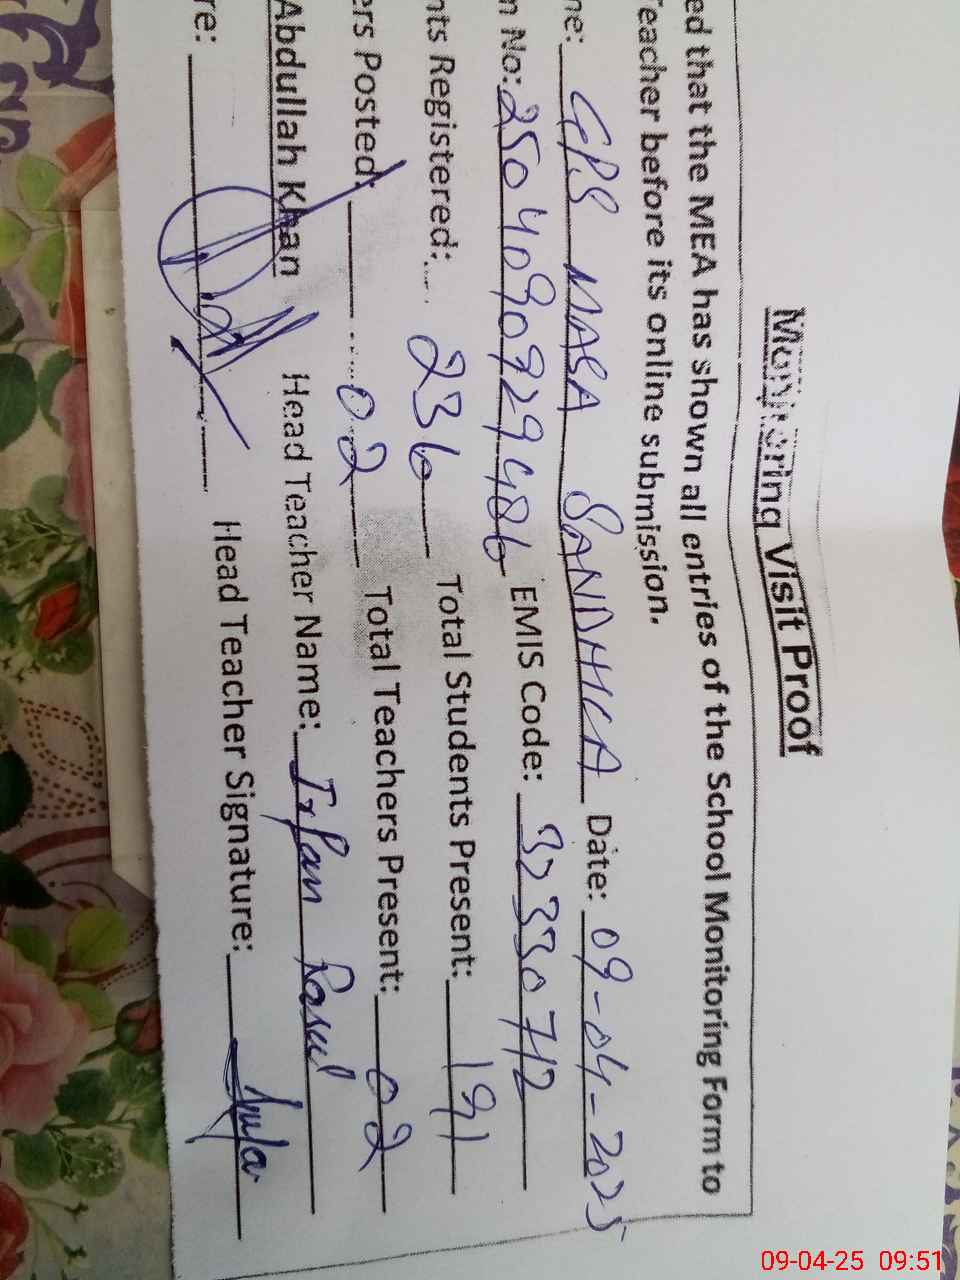 Monitoring Visit Proof
ed that the MEA has shown all entries of the School Monitoring Form to
Teacher before its online submission.
me: GPS MASA SANDHILA Date: 09-04-2025
n No: 2504090929486 EMIS Code: 32330712
nts Registered: 236 Total Students Present: 191
ers Posted: 02 Total Teachers Present: 02
Abdullah Khan Head Teacher Name: Irfan Rasul
re: Head Teacher Signature:
09-04-25 09:51